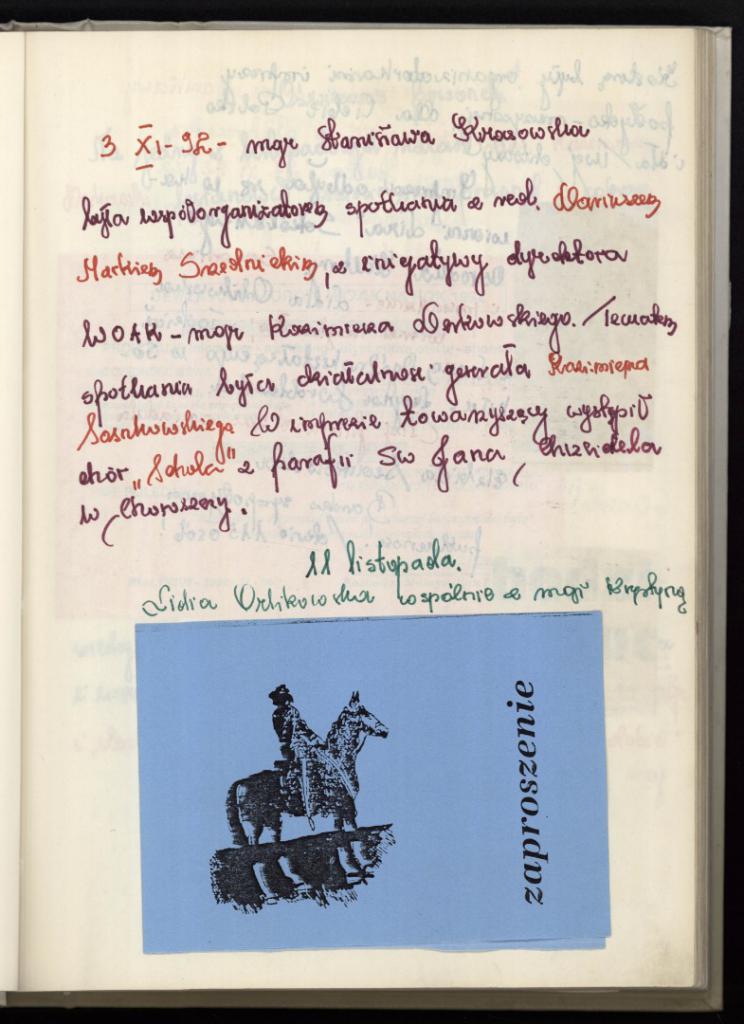 3 XI - 92 - mgr Stanisława Krasowska
była współorganizatorem spotkania z red. Dariuszem
Markiem Srzednickim, z inicjatywy dyrektora
WOAK - mgr Kazimierza Derkowskiego. Tematem
spotkania była działalność generała Kazimierza
Sosnkowskiego W imprezie towarzyszący wystąpił
chór "Schola" z parafii Św Jana Chrzciciela
w Choroszczy.
11 listopada.
Lidia Orlikowska wspólnie z mgr Krystyną
zaproszenie